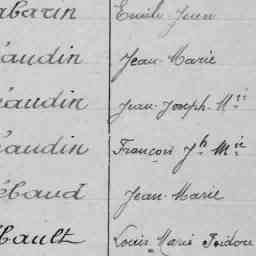 abarin Emile Jean
éaudin Jean-Marie
éaudin Jean-Joseph-Mie
éaudin François Jh Mie
ébaud Jean-Marie
bault Louis Marie Isidore